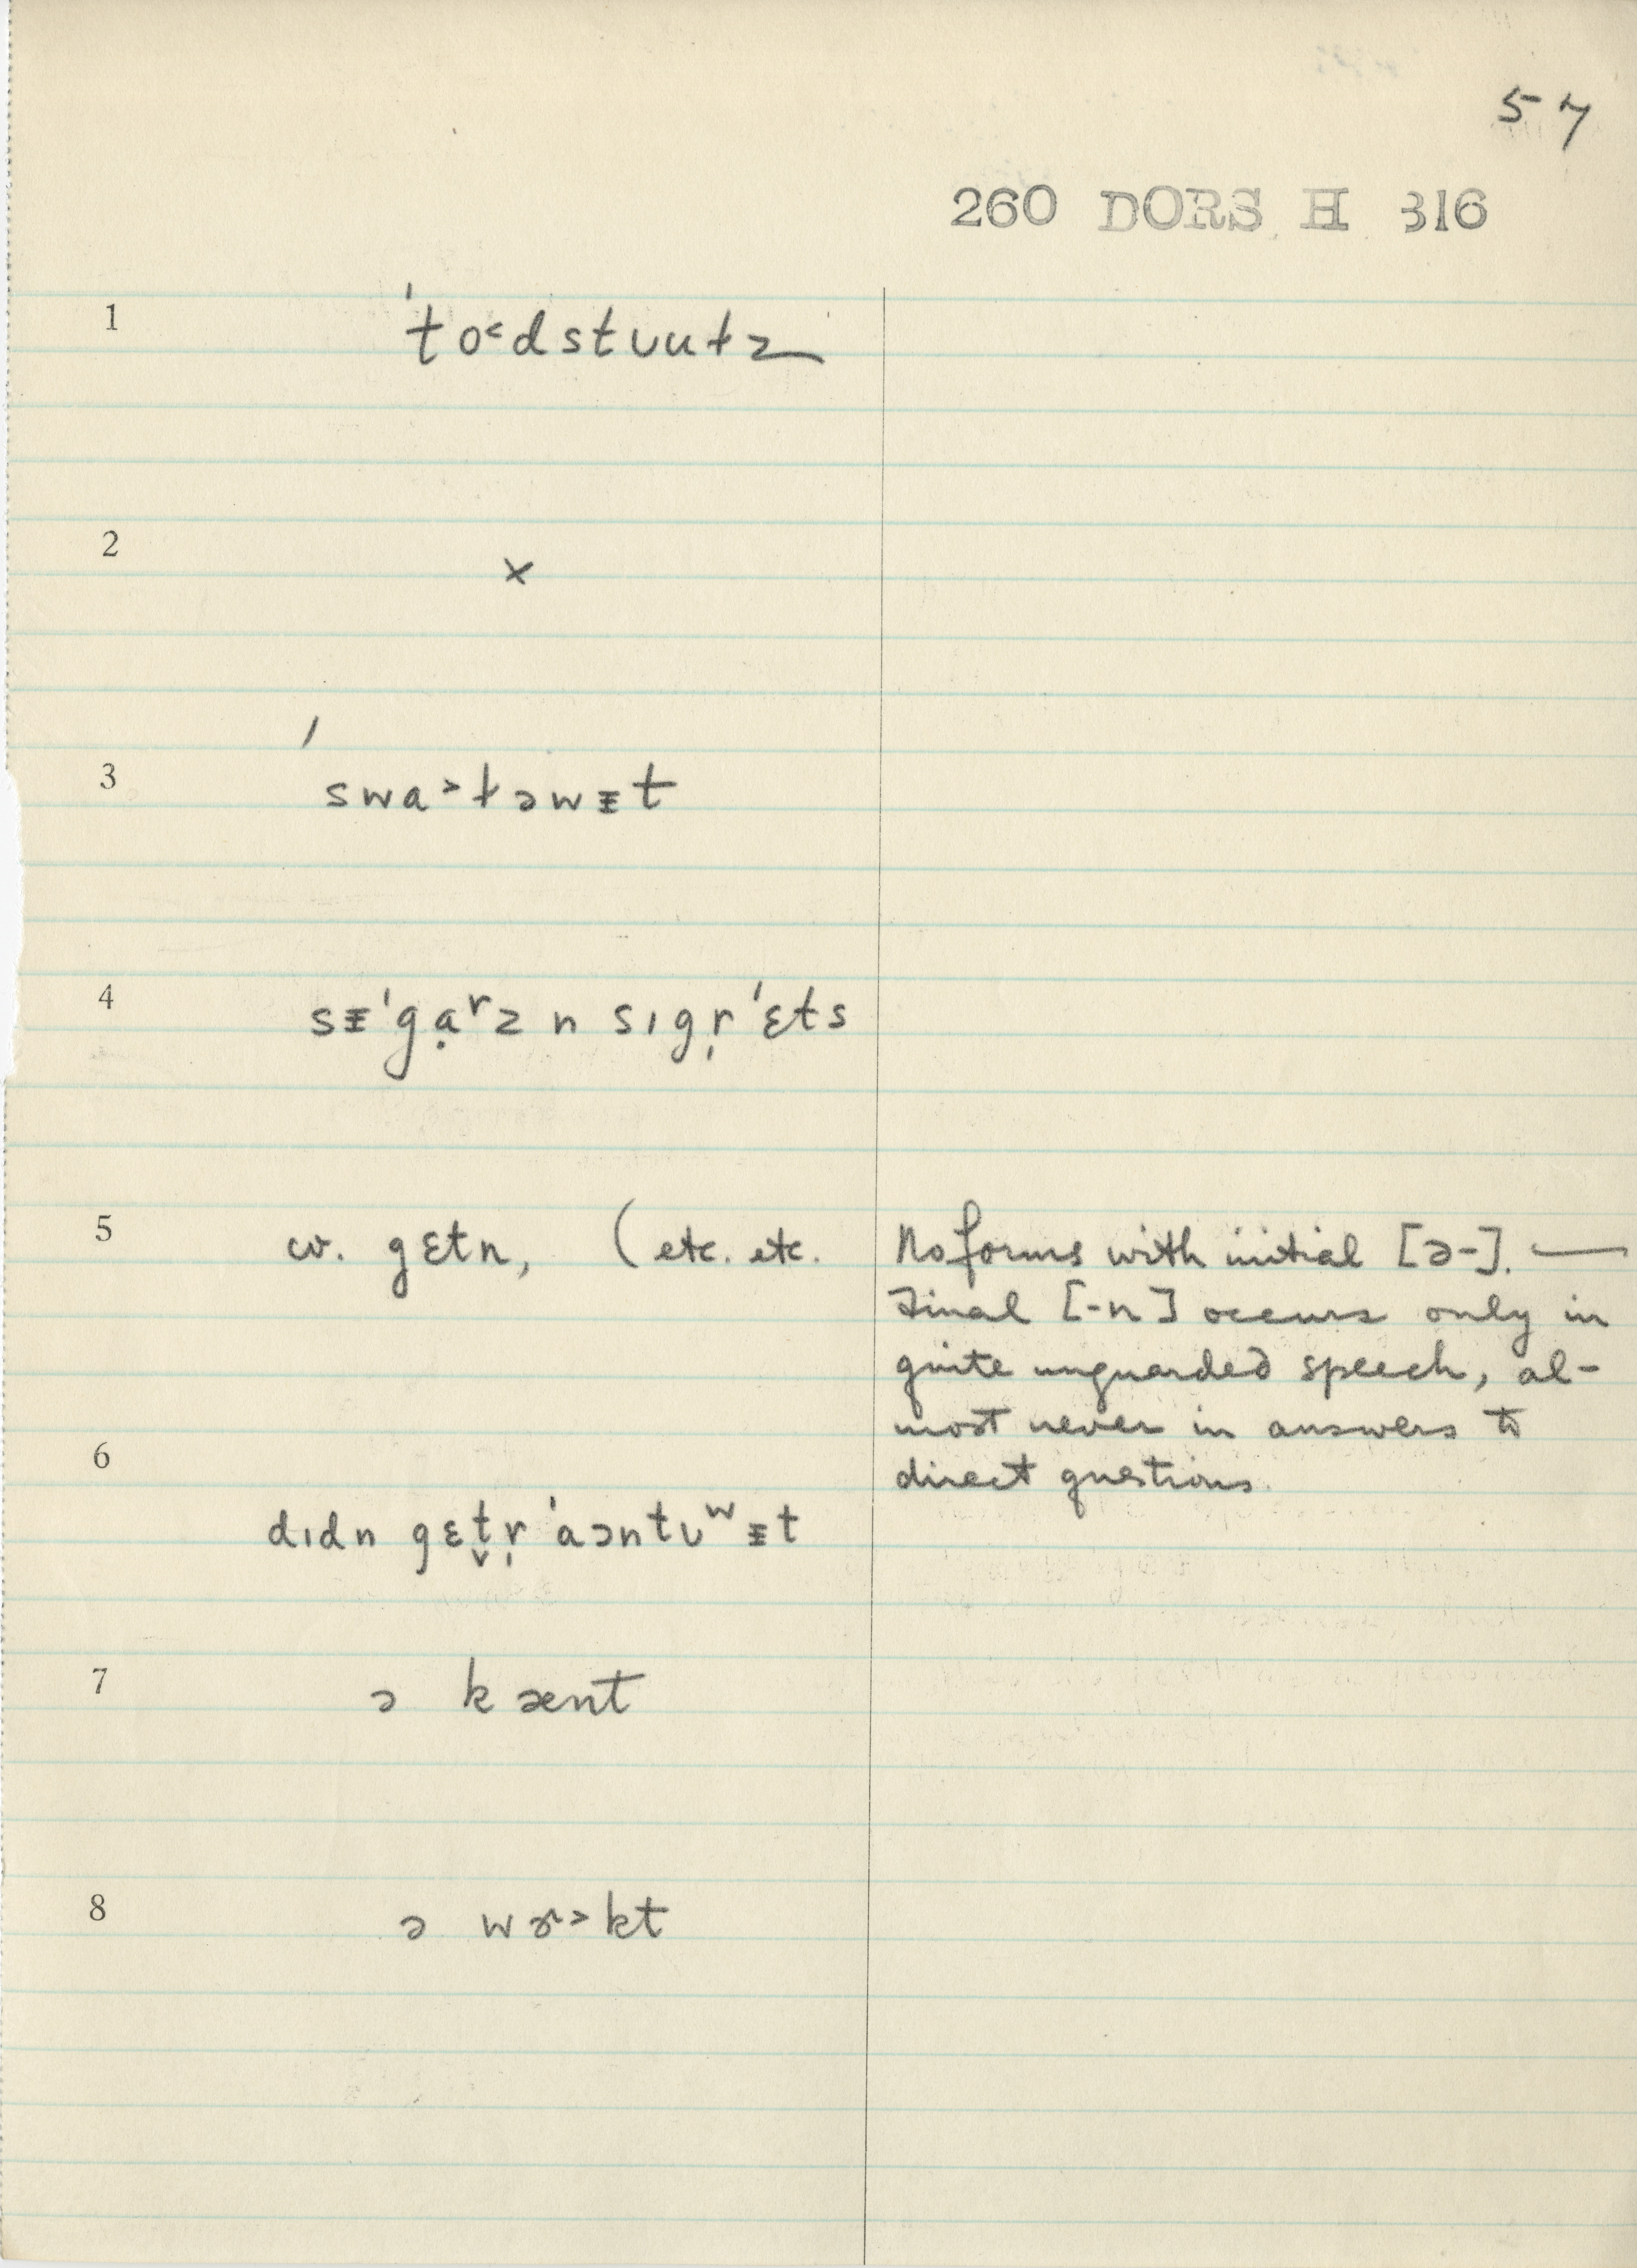 57
260 DORS H 316
1 ˈto˂dstᴜuɫz
2 ×
3 ˈswa˃ɫəwᵻt
4 sᵻˈgạʳz n sɪgr̩ˈɛts
5 cv. gɛtn, (etc. etc. No forms with initial [ə-]. —
Final [-n] occurs only in
quite unguarded speech, al-
most never in answers to
6 direct questions.
dɪdn gɛt̬r̩ ˈaɔntᴜʷᵻt
7 ə kænt
8 ə wɚ˃kt